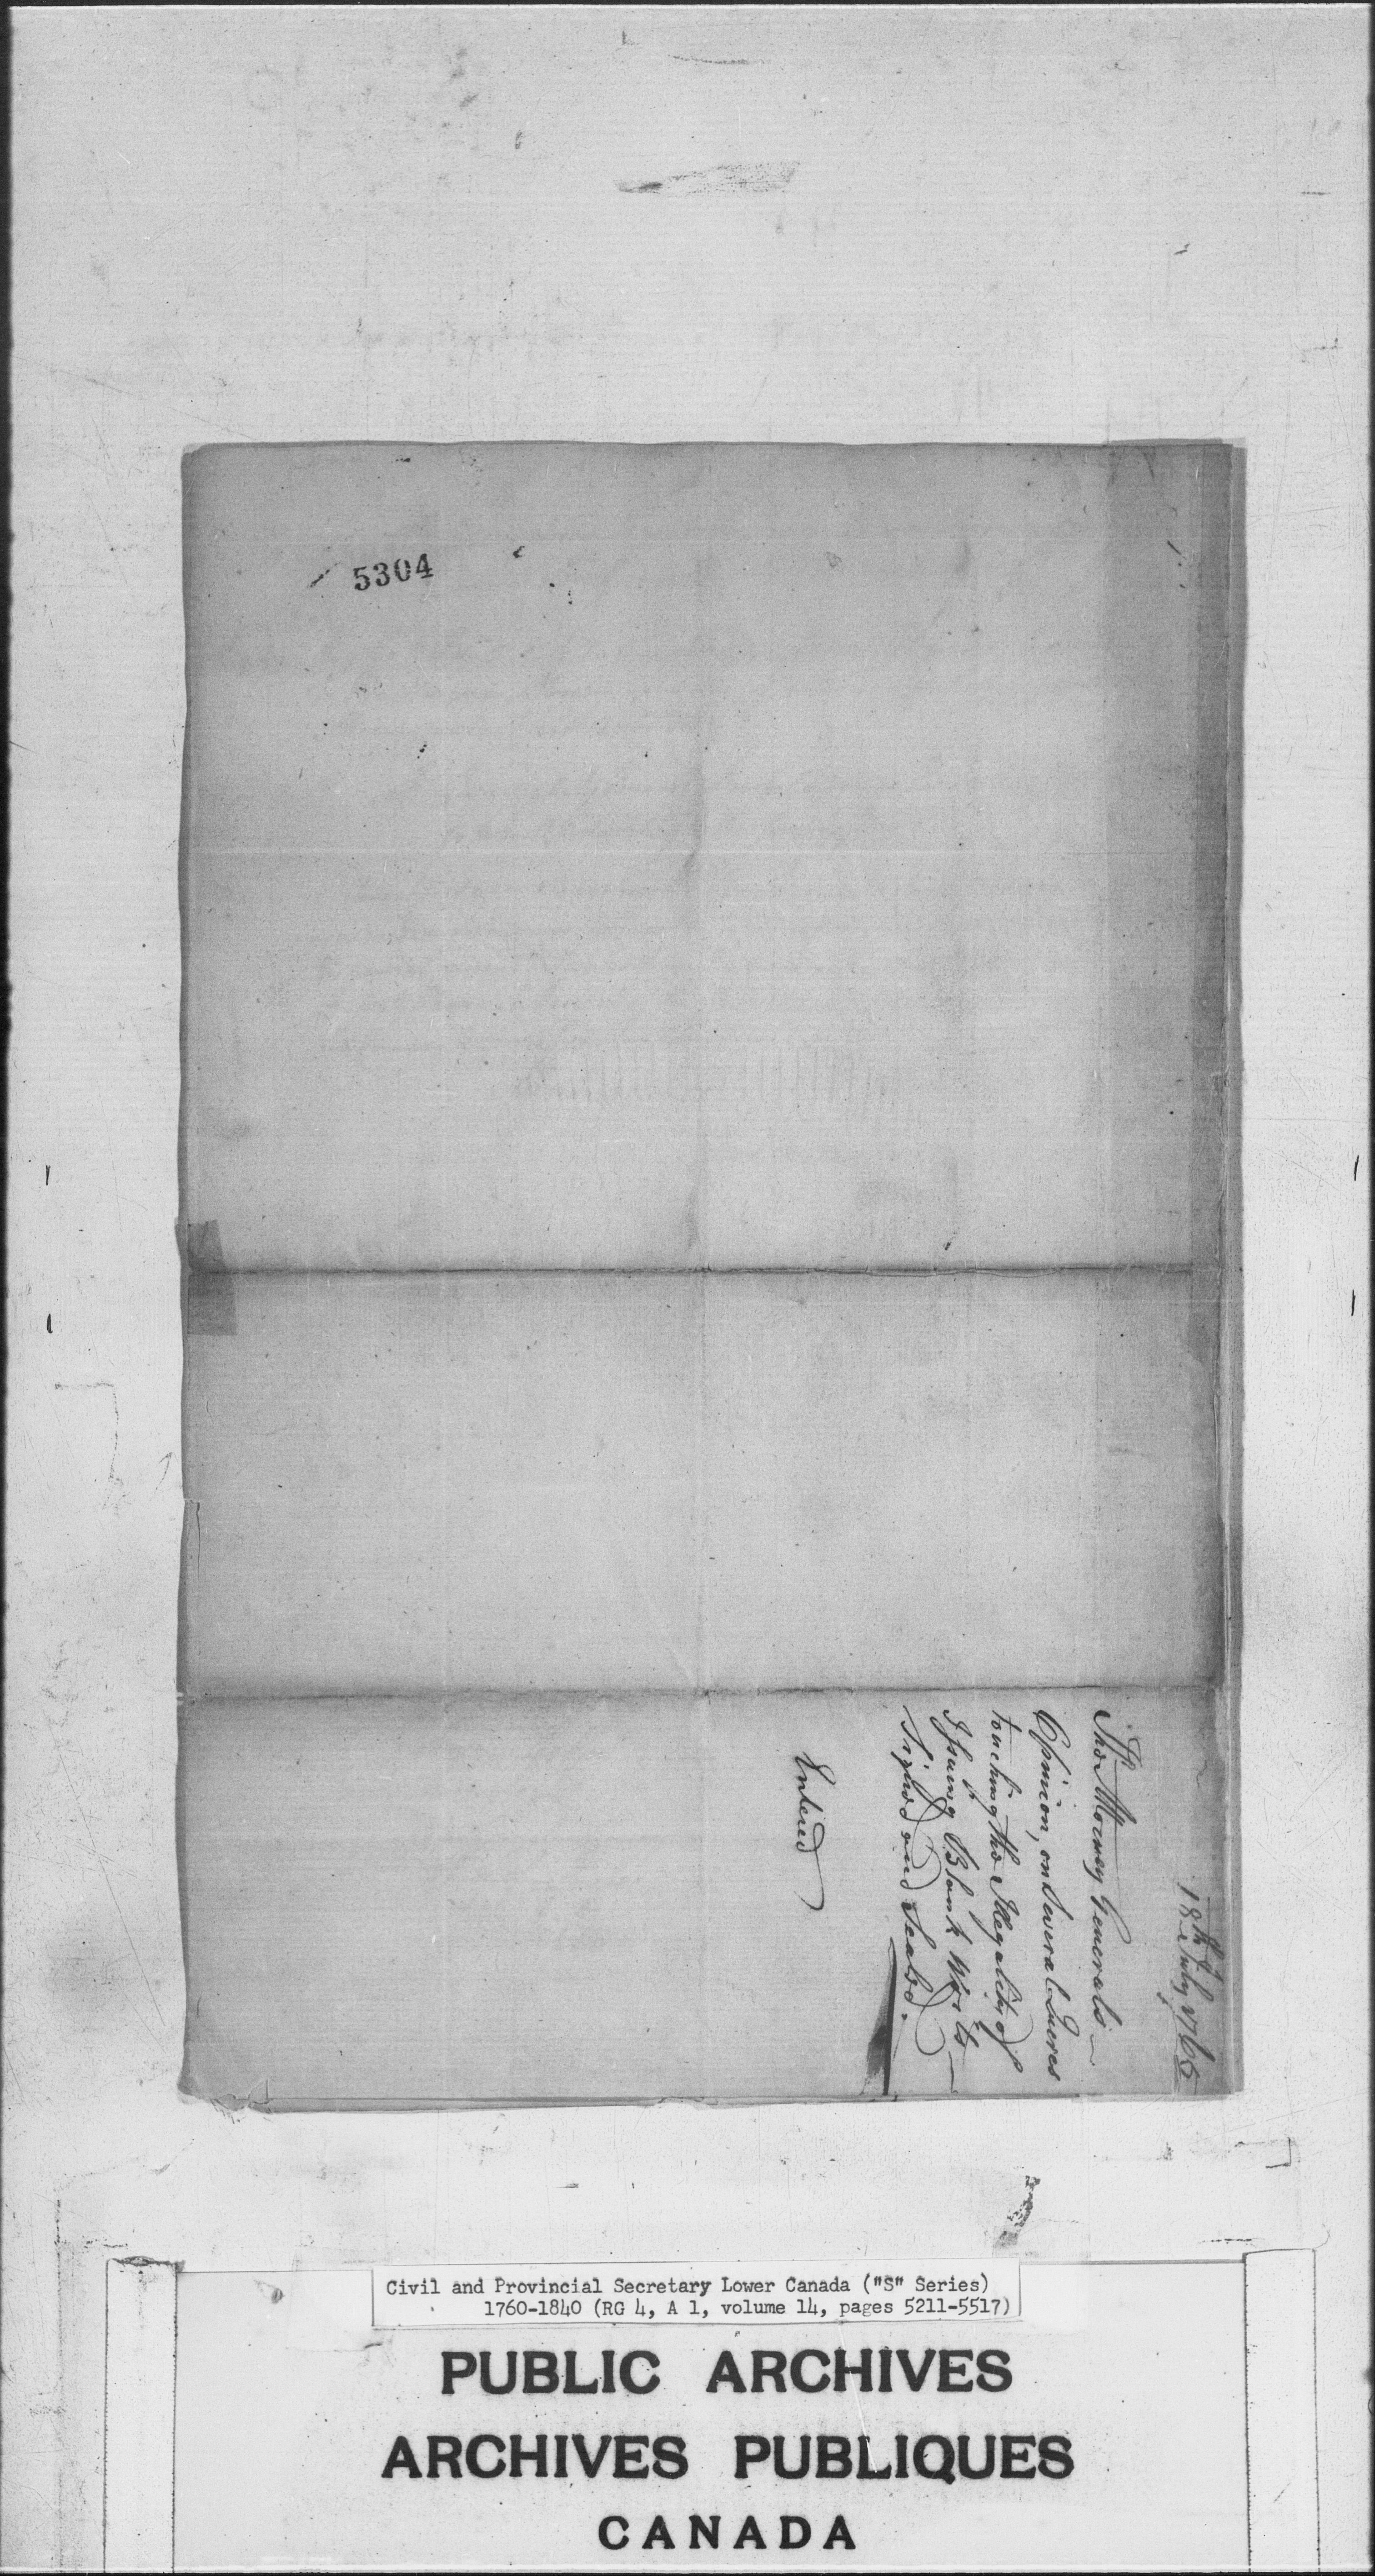 5304
18th July 1766
The Attorney Generals
Opinion, on Several Queres
touching the Illegality of
Issuing Blank Writs
Signed and Sealed.
Entered
Civil and Provincial Secretary Lower Canada ("S" Series)
1760-1840 (RG 4, A 1, volume 14, pages 5211-5517)
PUBLIC ARCHIVES
ARCHIVES PUBLIQUES
CANADA